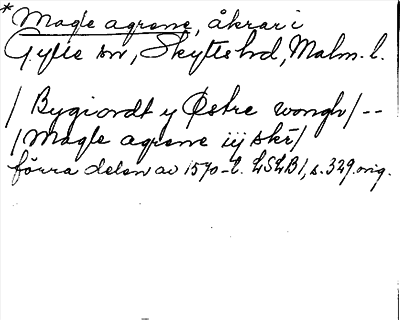 * Magle agrene, åkrar i
Gylle sn, Skytts hd, Malm. l.
/ Bygiordt y Østre wongh / --
/ Magle agrene iij skr /
förra delen av 1570-t. LSLB 1, s. 329. orig.